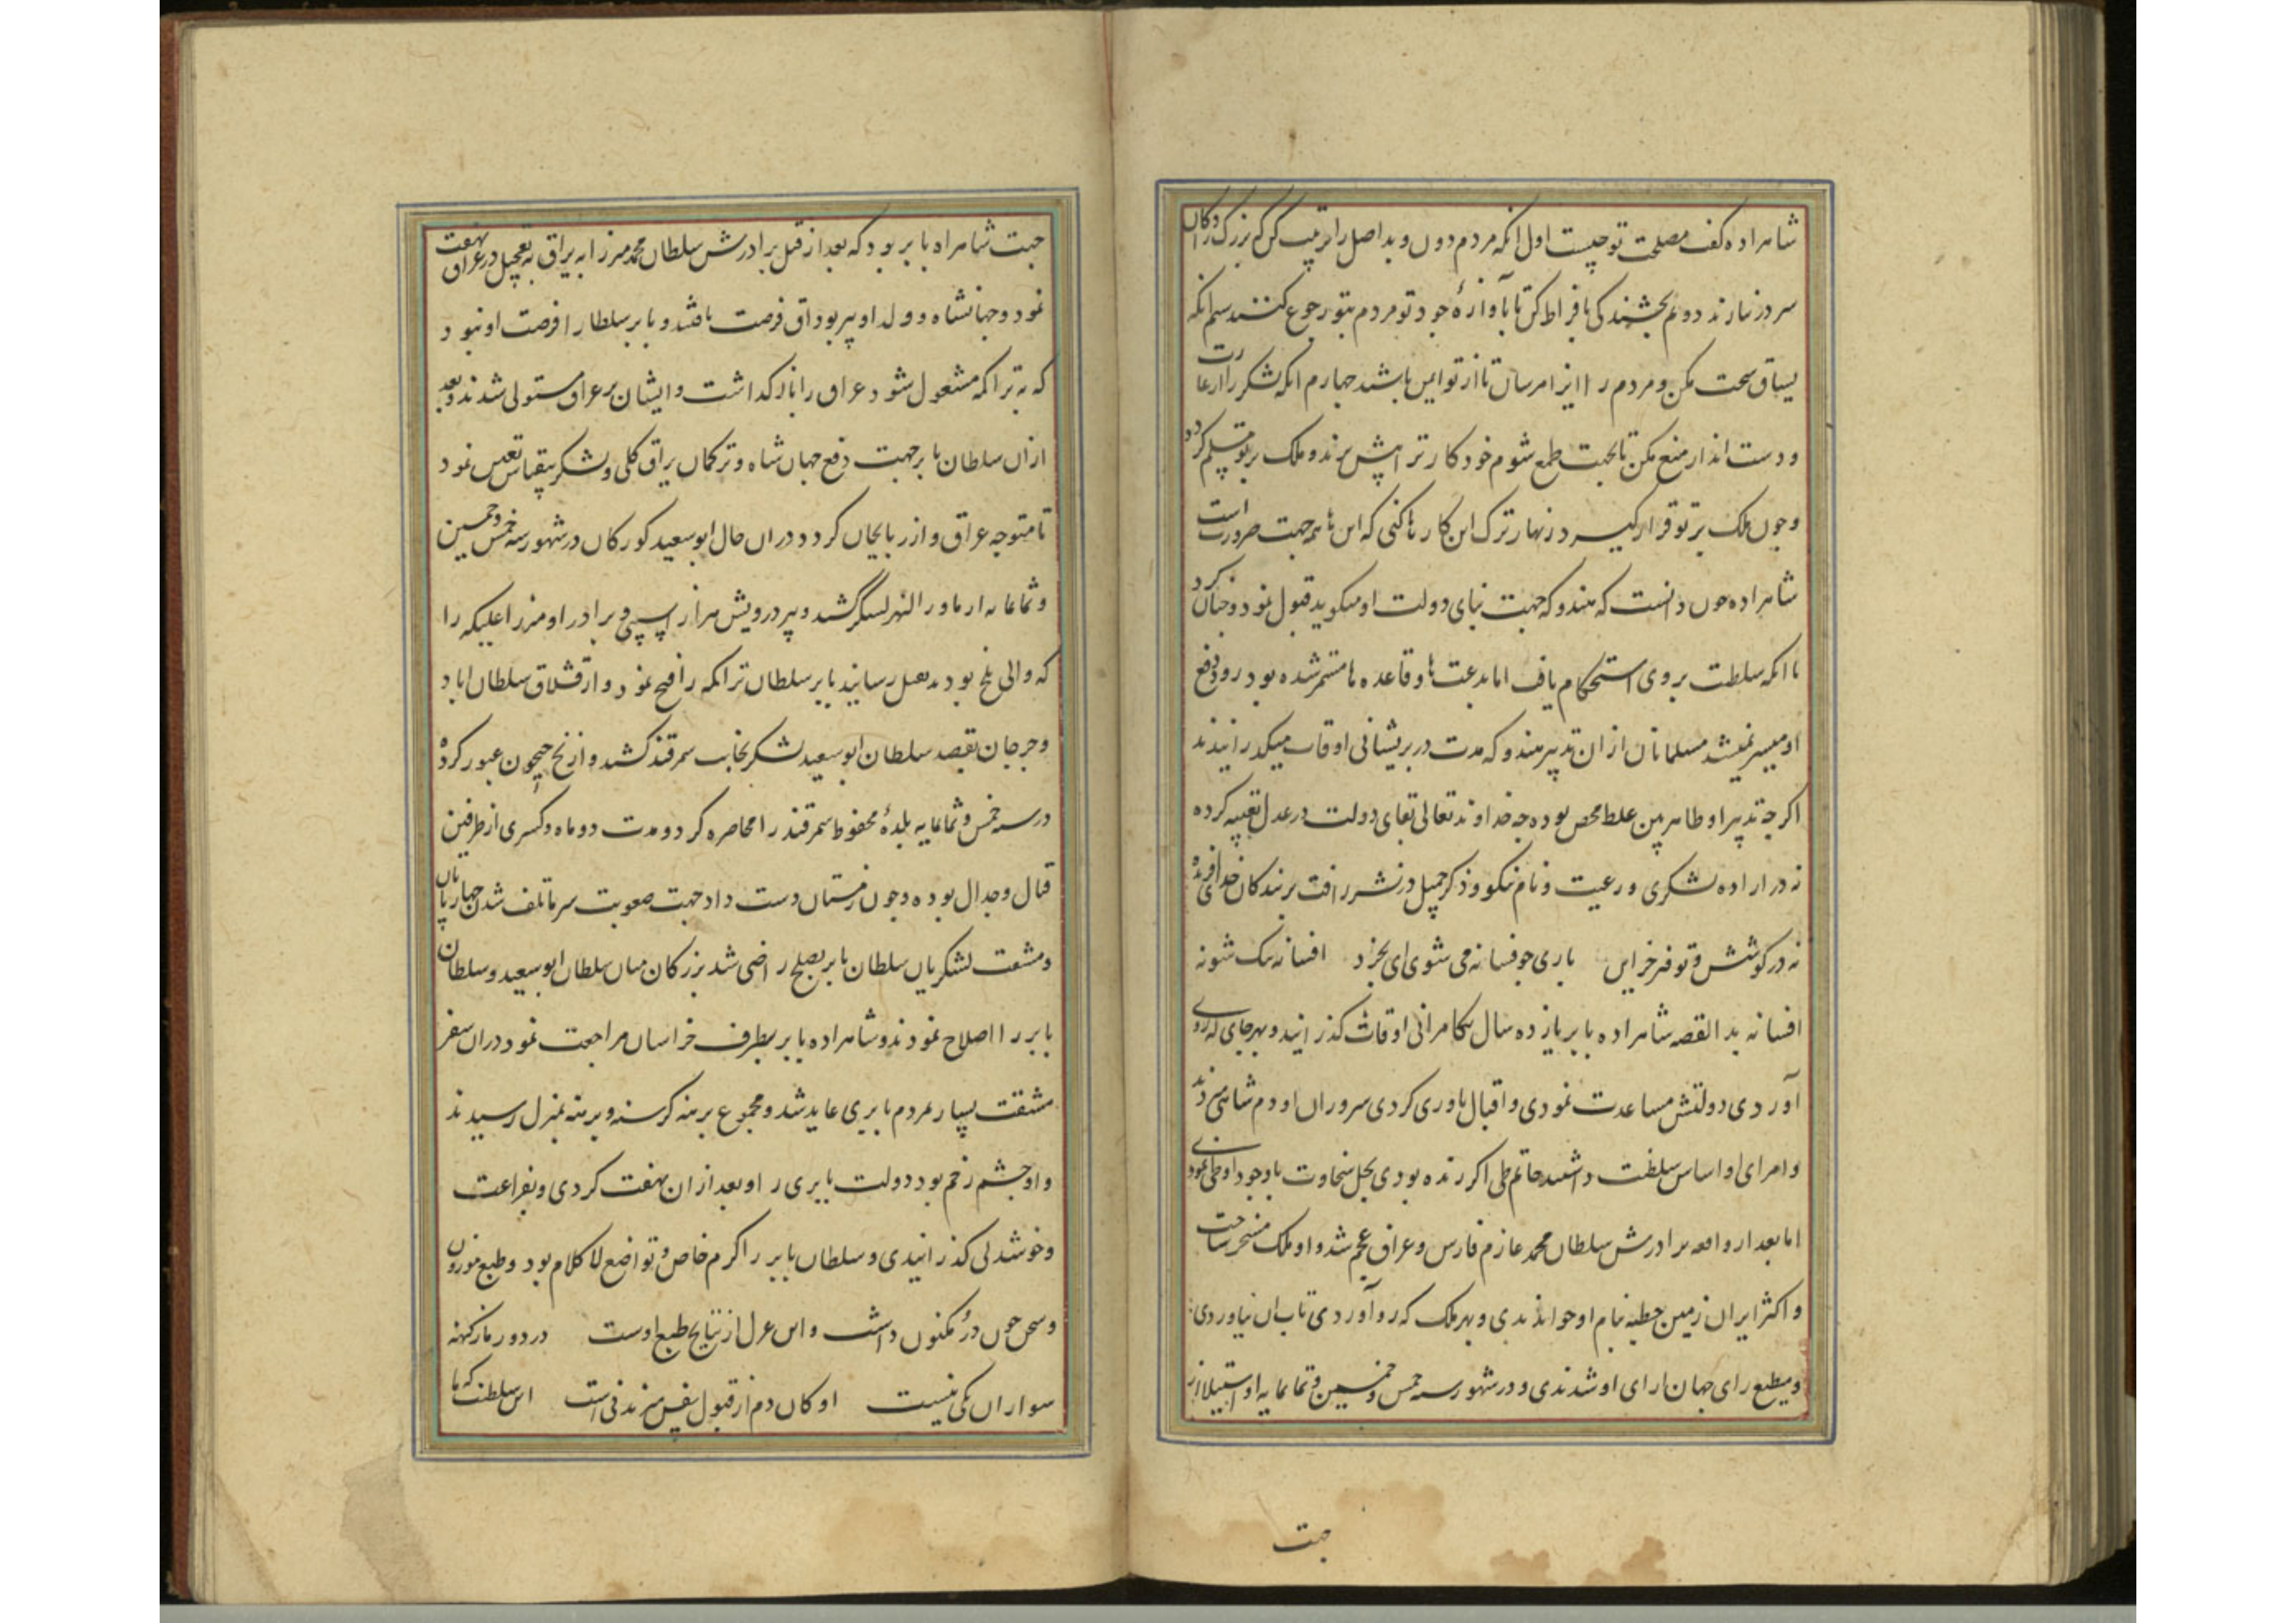 شاهزاده گفت مصلحت تو چیست اول آنکه مردم دون و بد اصل را تربیت کن که بزرگ‌زادگان
سر در نیارند دویم بخشندگی بافراط کن تا بآوازهٔ جود تو مردم بتو رجوع کنند سیم آنکه
یساق سخت مکن و مردم را ایذا مرسان تا از تو ایمن باشند چهارم آنکه لشکر را از غارت
و دست‌انداز منع مکن تا بجهت طمع شوم خود کار ترا پیش برند و ملک بر تو مسلم گردد
و چون ملک بر تو قرار گیرد زنهار ترک این کارها کنی که این‌ها همه جهت ضرورت است
شاهزاده چون دانست که هندوکه جهت بنای دولت او میگوید قبول نمود و چنان کرد
با آنکه سلطنت بر وی استحکام یافت اما بدعت‌ها و قاعده‌ها مستمر شده بود رو دفع
او میسر نمیشد مسلمانان از آن تدبیر هندوکه مدت در پریشانی اوقات میگذرانیدند
اگرچه تدبیر او ظاهربین غلط محض بوده چه خداوند تعالی بقای دولت در عدل تعبیه کرده
نه در اراده لشکری و رعیت و نام نیکو و ذکر جمیل در نشر رافت بر بندگان خدای آفریده
نه در کوشش و توفیر خزاین باری چو فسانه می شوی ای بخرد افسانه نیک شو نه
افسانه بد القصه شاهزاده بابر یازده سال بکامرانی اوقات گذرانید و بهر جای که روی
آوردی دولتش مساعدت نمودی و اقبال یاوری کردی سروران او دم شاهی میزدند
و امرای او اساس سلطنت داشتند حاتم طی اگر زنده بودی بخل سخاوت با وجود او طی نمودی
اما بعد از واقعه برادرش سلطان محمد عازم فارس و عراق عجم شد و او ملک مسخر ساخت
و اکثر ایران زمین خطبه بنام او خواندندی و بهر ملک که رو آوردی تاب آن نیاوردی
و مطیع رای جهان‌آرای او شدندی و در شهور سنه خمس و خمسین و ثمانمایه او استیلا از
جهت
جهت شاهزاه بابر بود که بعد از قتل برادرش سلطان محمد میرزا به یراق به تعجیل در عراق نهضت
نمود و جهانشاه و ولد او پیر بوداق فرصت یافتند و بابر سلطان را فرصت او نبود
که به تراکمه مشغول شود عراق را باز گذاشت و ایشان بر عراق مستولی شدند و بعد
از آن سلطان بابر جهت دفع جهان شاه و ترکمان یراق کلی و لشکر بیقیاس تعیین نمود
تا متوجه عراق و آذربایجان گردد در آن حال ابوسعید کورکان در شهور سنه خمس و خمسین
و ثمانمایه از ماورا النهر لشکر کشید و پیر درویش هزار اسپی و برادر او میرزا علیکه را
که والی بلخ بود بقتل رسانید بابر سلطان تراکمه را فتح نمود و از قشلاق سلطان‌آباد
و جرجان بقصد سلطان ابوسعید لشکر بجانب سمرقند کشید و از نخ جیحون عبور کرده
در سنه خمس و ثمانمایه بلدهٔ محفوظ سمرقند را محاصره کرد و مدت دو ماه و کسری از طرفین
قتال و جدال بوده و چون زمستان دست داد جهت صعوبت سرما تلف شدن چهارپایان
و مشقت لشکریان سلطان بابر بصلح راضی شد بزرگان میان سلطان ابوسعید و سلطان
بابر را اصلاح نمودند و شاهزاده بابر بطرف خراسان مراجعت نمود در آن سفر
مشقت بسیار بمردم بابری عاید شد و مجموع برهنه گرسنه و برهنه بمنزل رسیدند
و او چشم زخم بود دولت بابری را و بعد از آن نهضت کردی و بفراغت
و خوشدلی گذرانیدی و سلطان بابر را کرم خاص و تواضع لا کلام بود و طبع موزون
و سخن چون در مکنون داشت و این غزل از نتایج طبع اوست در دور ما ز کهنه
سواران یکی نیست او کان دم از قبول نفس میزند نی است این سلطنت که ما